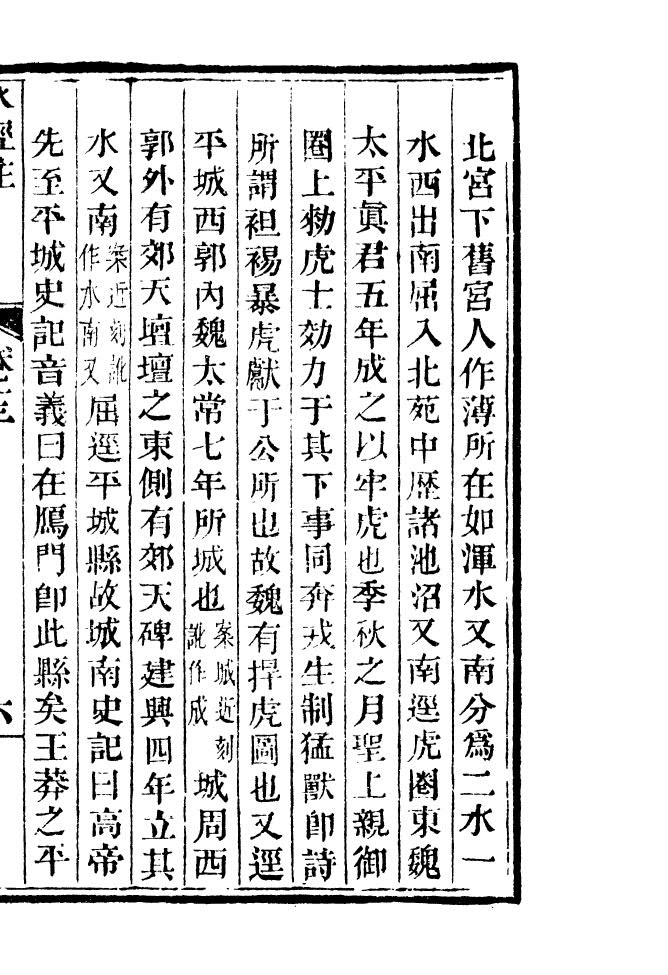 北宮下舊宮人作薄所在如渾水又南分爲二水一
水西出南屈入北苑中歷諸池沼又南逕虎圈東魏
太平眞君五年成之以牢虎也季秋之月聖上親御
圈上勑虎士效力于其下事同奔戎生制猛獸卽詩
所謂袒裼暴虎獻于公所也故魏有捍虎圖也又逕
平城西郭內魏太常七年所城也案城近刻訛作成城周西
郭外有郊天壇壇之東側有郊天碑建興四年立其
水又南案近刻訛作水南又屈逕平城縣故城南史記曰高帝
先至平城史記音義曰在鴈門卽此縣矣王莽之平
水經注
六